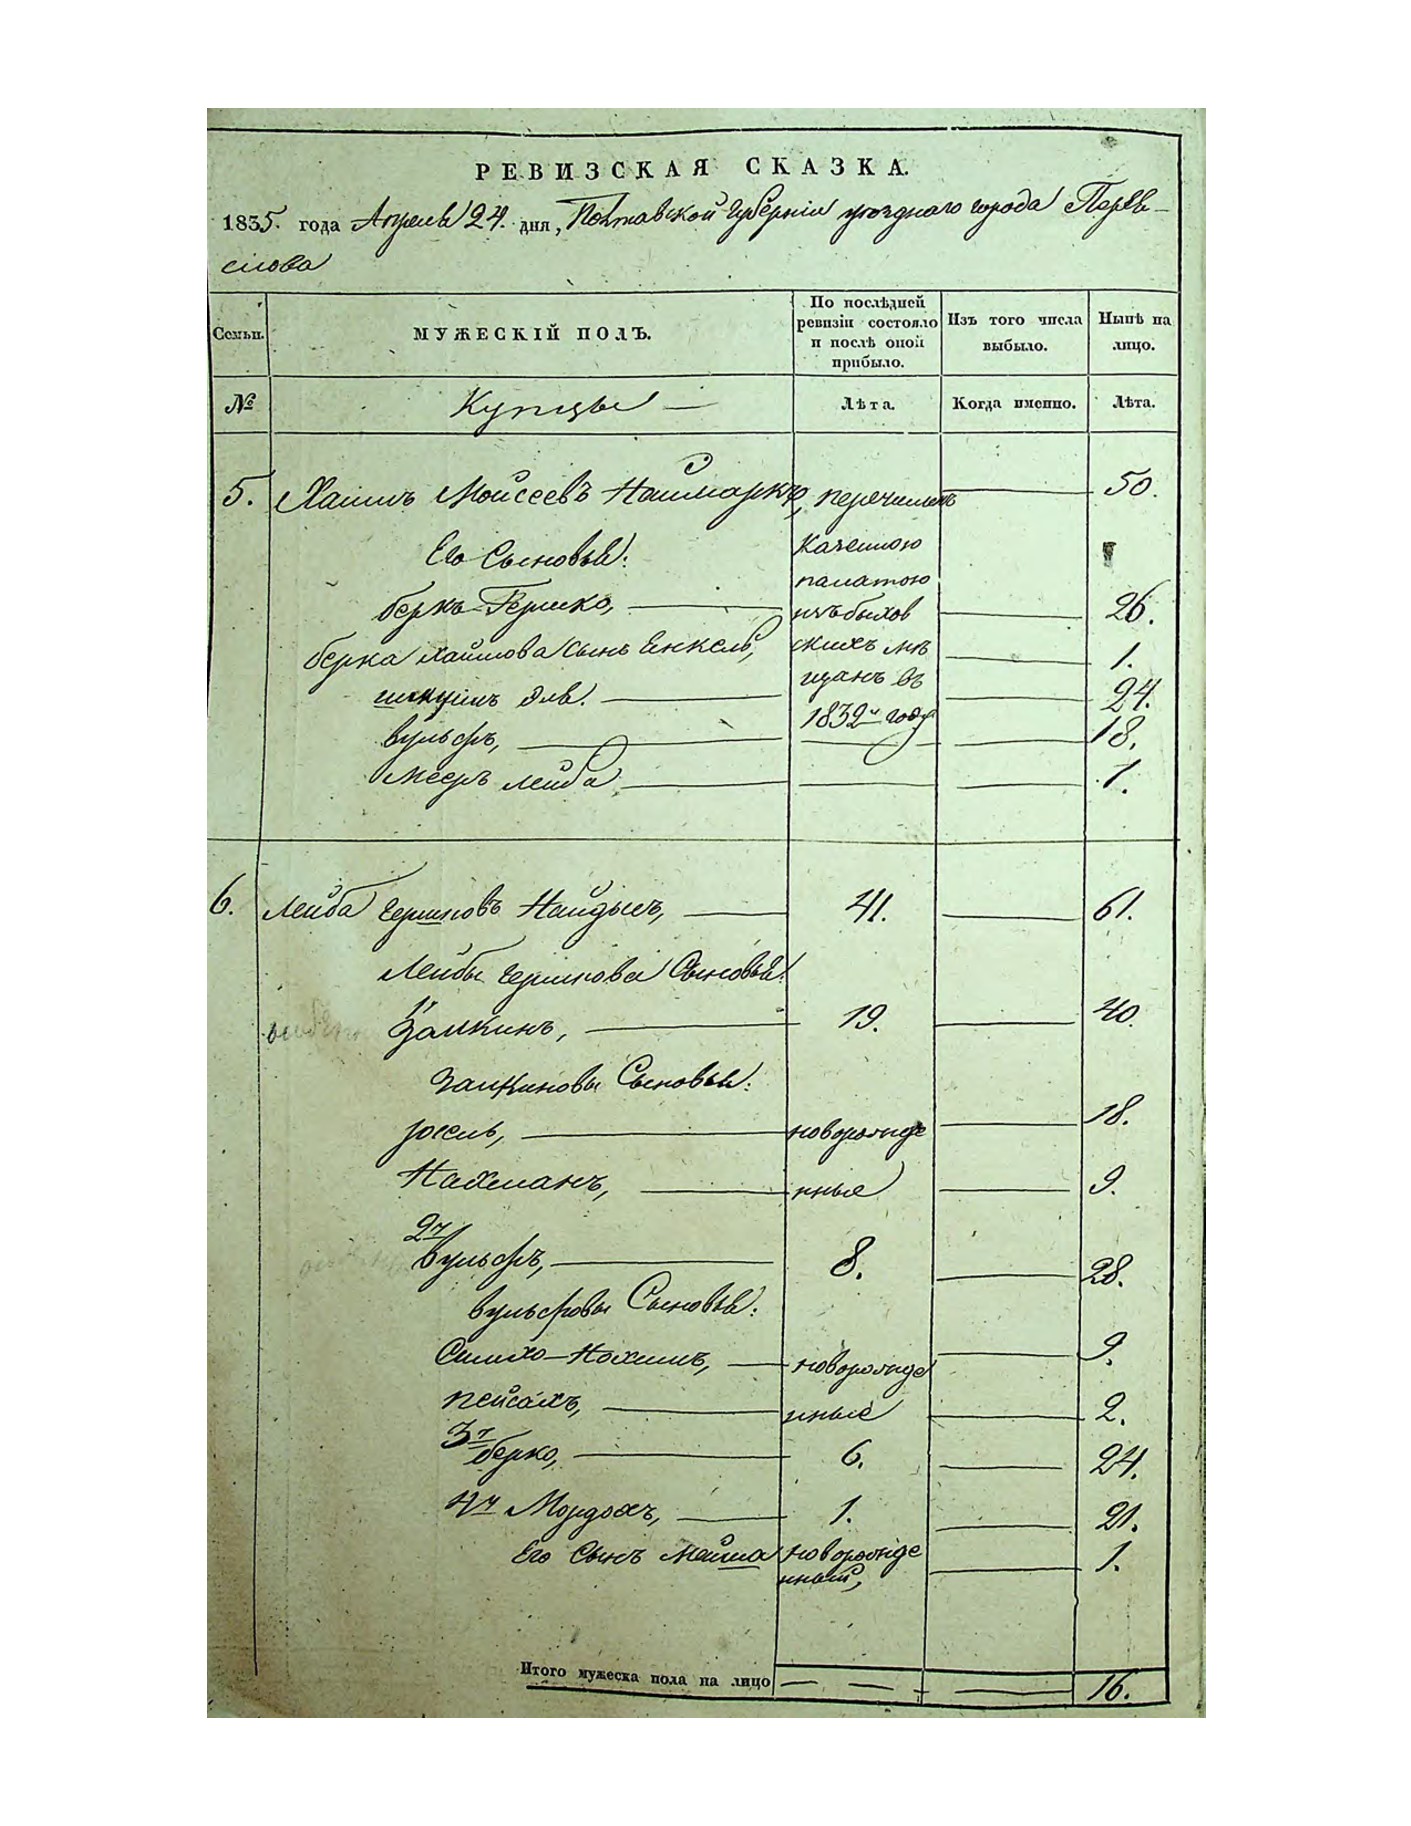 РЕВИЗСКАЯ СКАЗКА.
1835. года Апреля 24. дня, Полтавской Губерніи уезднаго города Перея-
слова
Семьи. МУЖЕСКІЙ ПОЛЪ. По послѣдней ревизіи состояло и послѣ оной прибыло. Изъ того числа выбыло. Нынѣ на лицо.
№ Купцы Лѣта. Когда именно. Лѣта.
5. Хаимъ Моисеевъ Наймаркъ, перечисленъ 50.
Его Сыновья: Казенною
палатою
берка-Гершко, изъ быхов 26.
берка Хаимова Сынъ Енкель, скихъ мѣ 1.
щанъ въ 24.
вульфъ, 1832м году 18.
Мееръ лейба 1.
6. Лейба Гершковъ Найдычъ, 41. 61.
Лейбы Гершкова Сыновья:
1й Залкинъ, 19. 40.
Залкиновы Сыновья:
Іосель, новорожде 18.
Нахманъ, нные 9.
2й вульфъ, 8. 28.
вульфовы Сыновья:
Симхо-Нохимъ, новорожде 9.
пейсахъ, нные 2.
3й берко, 6. 24.
4й Мордохъ, 1. 21.
Его Сынъ Мойша новорожде 1.
нный,
Итого мужеска пола на лицо 16.